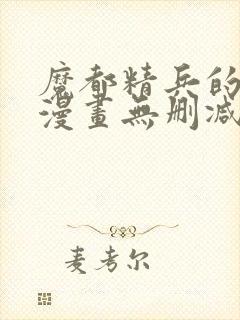 魔都精兵的
漫畫無刪減
麦考尔